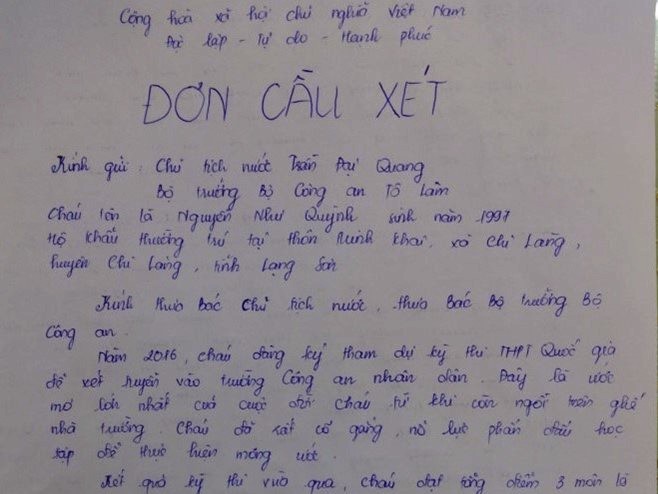 Cộng hoà xã hội chủ nghĩa Việt Nam
Độc lập - Tự do - Hạnh phúc
ĐƠN CẦU XÉT
Kính gửi : Chủ tịch nước Trần Đại Quang
Bộ trưởng Bộ Công an Tô Lâm
Cháu tên là Nguyễn Như Quỳnh sinh năm 1997
Hộ khẩu thường trú tại thôn Minh Khai, xã Chi Lăng,
huyện Chi Lăng, tỉnh Lạng Sơn
Kính thưa Bác Chủ tịch nước, thưa Bác Bộ trưởng Bộ
Công an.
Năm 2016, cháu đăng ký tham dự kỳ thi THPT Quốc gia
để xét tuyển vào trường Công an nhân dân. Đây là ước
mơ lớn nhất của cuộc đời cháu từ khi còn ngồi trên ghế
nhà trường. Cháu đã rất cố gắng, nỗ lực phấn đấu học
tập để thực hiện mong ước.
Kết quả kỳ thi vừa qua, cháu đạt tổng điểm 3 môn là